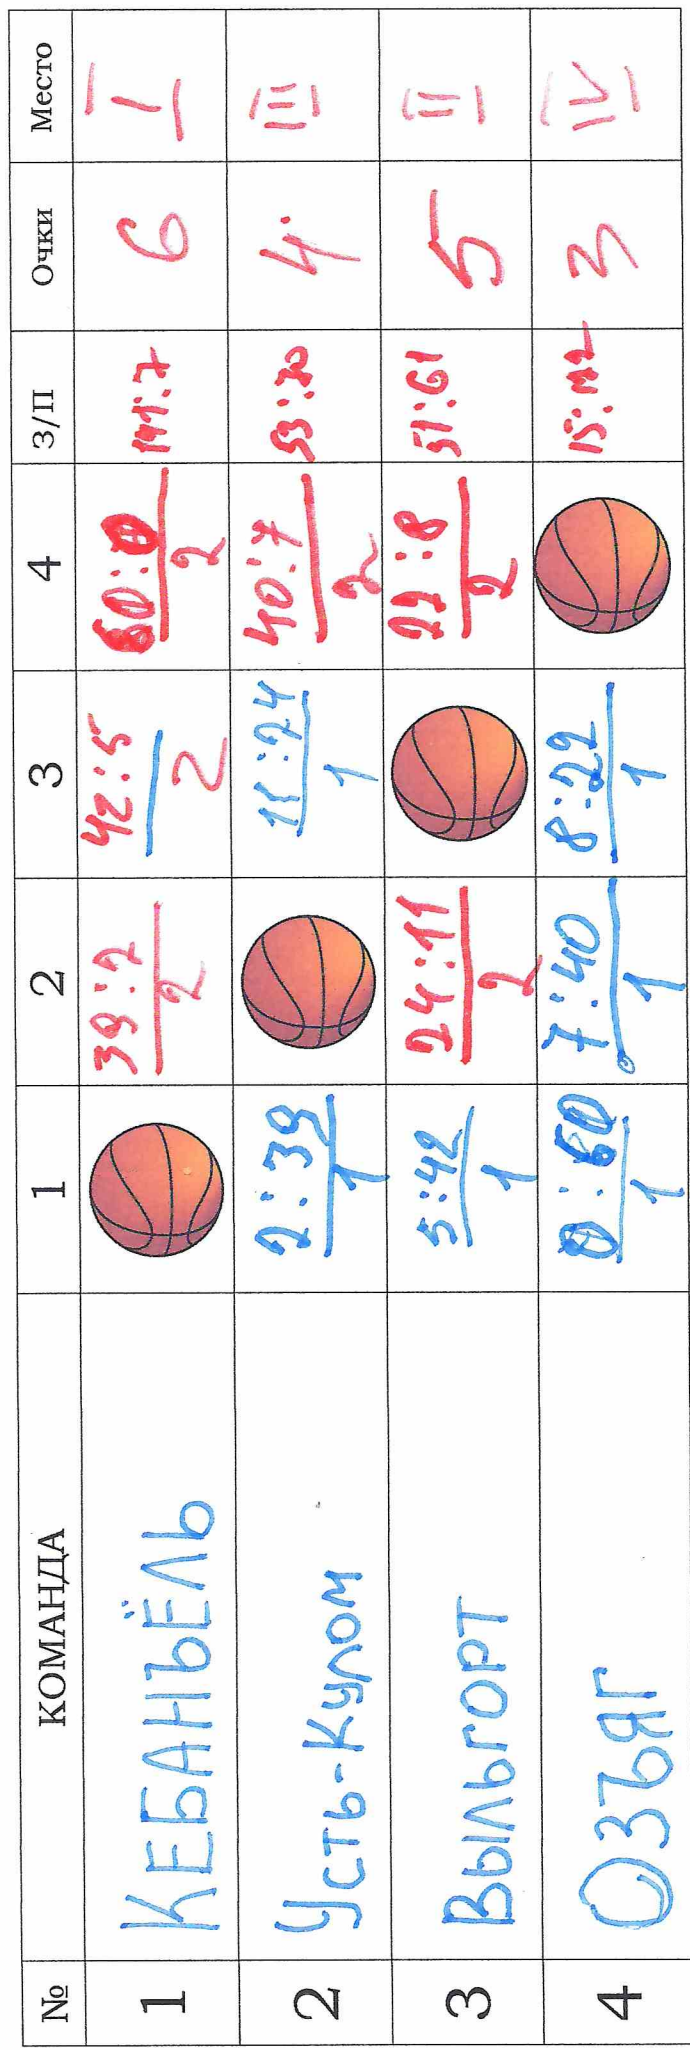 № КОМАНДА 1 2 3 4 З/П Очки Место
1 КЕБАНЪЁЛЬ 39:2 42:5 60:0 141:7 6 I
2 2 2
2 Усть-Кулом 2:39 11:24 40:7 53:70 4 III
1 1 2
3 Выльгорт 5:42 24:11 22:8 51:61 5 II
1 2 2
4 Озъяг 0:60 7:40 8:22 15:122 3 IV
1 1 1